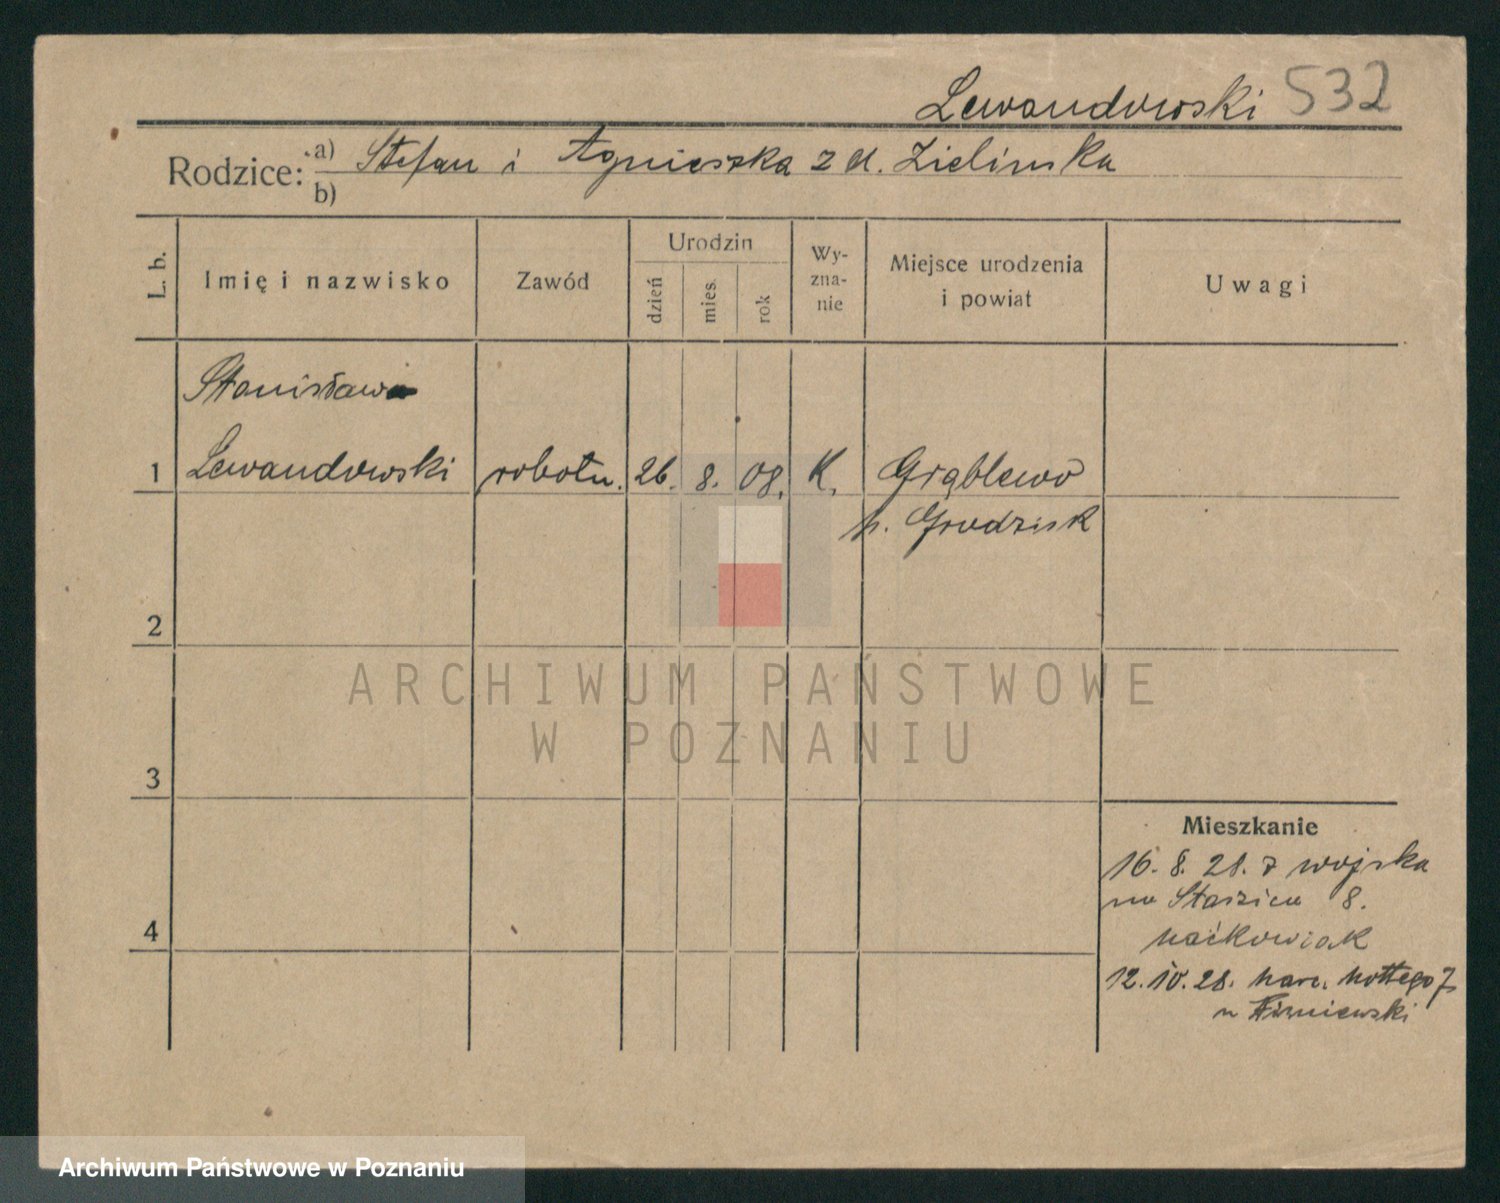 Lewandowski 532
Rodzice: a) Stefan i Agnieszka z d. Zielinska
b)
L. b.
Imię i nazwisko
Zawód
Urodzin
dzień
mies.
rok
Wy-
zna-
nie
Miejsce urodzenia
i powiat
Uwagi
Stanisław
1 Lewandowski robotn. 26. 8. 08. K. Grąblewo
p. Grodzisk
2
ARCHIWUM PAŃSTWOWE
W POZNANIU
3
Mieszkanie
16. 8. 28. z wojska
na Staszica 8.
4
12. 10. 28.
Archiwum Państwowe w Poznaniu